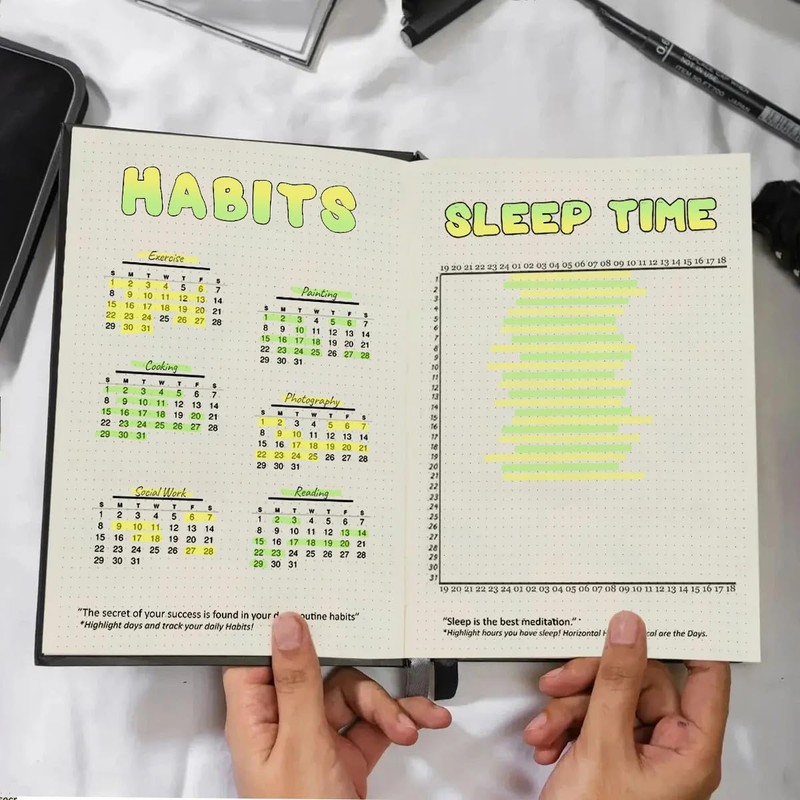 HABITS
Exercise
S M T W T F S
1 2 3 4 5 6 7
8 9 10 11 12 13 14
15 16 17 18 19 20 21
22 23 24 25 26 27 28
29 30 31
Painting
S M T W T F S
1 2 3 4 5 6 7
8 9 10 11 12 13 14
15 16 17 18 19 20 21
22 23 24 25 26 27 28
29 30 31
Cooking
S M T W T F S
1 2 3 4 5 6 7
8 9 10 11 12 13 14
15 16 17 18 19 20 21
22 23 24 25 26 27 28
29 30 31
Photography
S M T W T F S
1 2 3 4 5 6 7
8 9 10 11 12 13 14
15 16 17 18 19 20 21
22 23 24 25 26 27 28
29 30 31
Social Work
S M T W T F S
1 2 3 4 5 6 7
8 9 10 11 12 13 14
15 16 17 18 19 20 21
22 23 24 25 26 27 28
29 30 31
Reading
S M T W T F S
1 2 3 4 5 6 7
8 9 10 11 12 13 14
15 16 17 18 19 20 21
22 23 24 25 26 27 28
29 30 31
"The secret of your success is found in your routine habits"
*Highlight days and track your daily Habits!
SLEEP TIME
19 20 21 22 23 24 01 02 03 04 05 06 07 08 09 10 11 12 13 14 15 16 17 18
1
2
3
4
5
6
7
8
9
10
11
12
13
14
15
16
17
18
19
20
21
22
23
24
25
26
27
28
29
30
31
19 20 21 22 23 24 01 02 03 04 05 06 07 08 09 10 11 12 13 14 15 16 17 18
"Sleep is the best meditation."
*Highlight hours you have sleep! Horizontal are the Days.
0.8
NOT IN USE
JAPAN